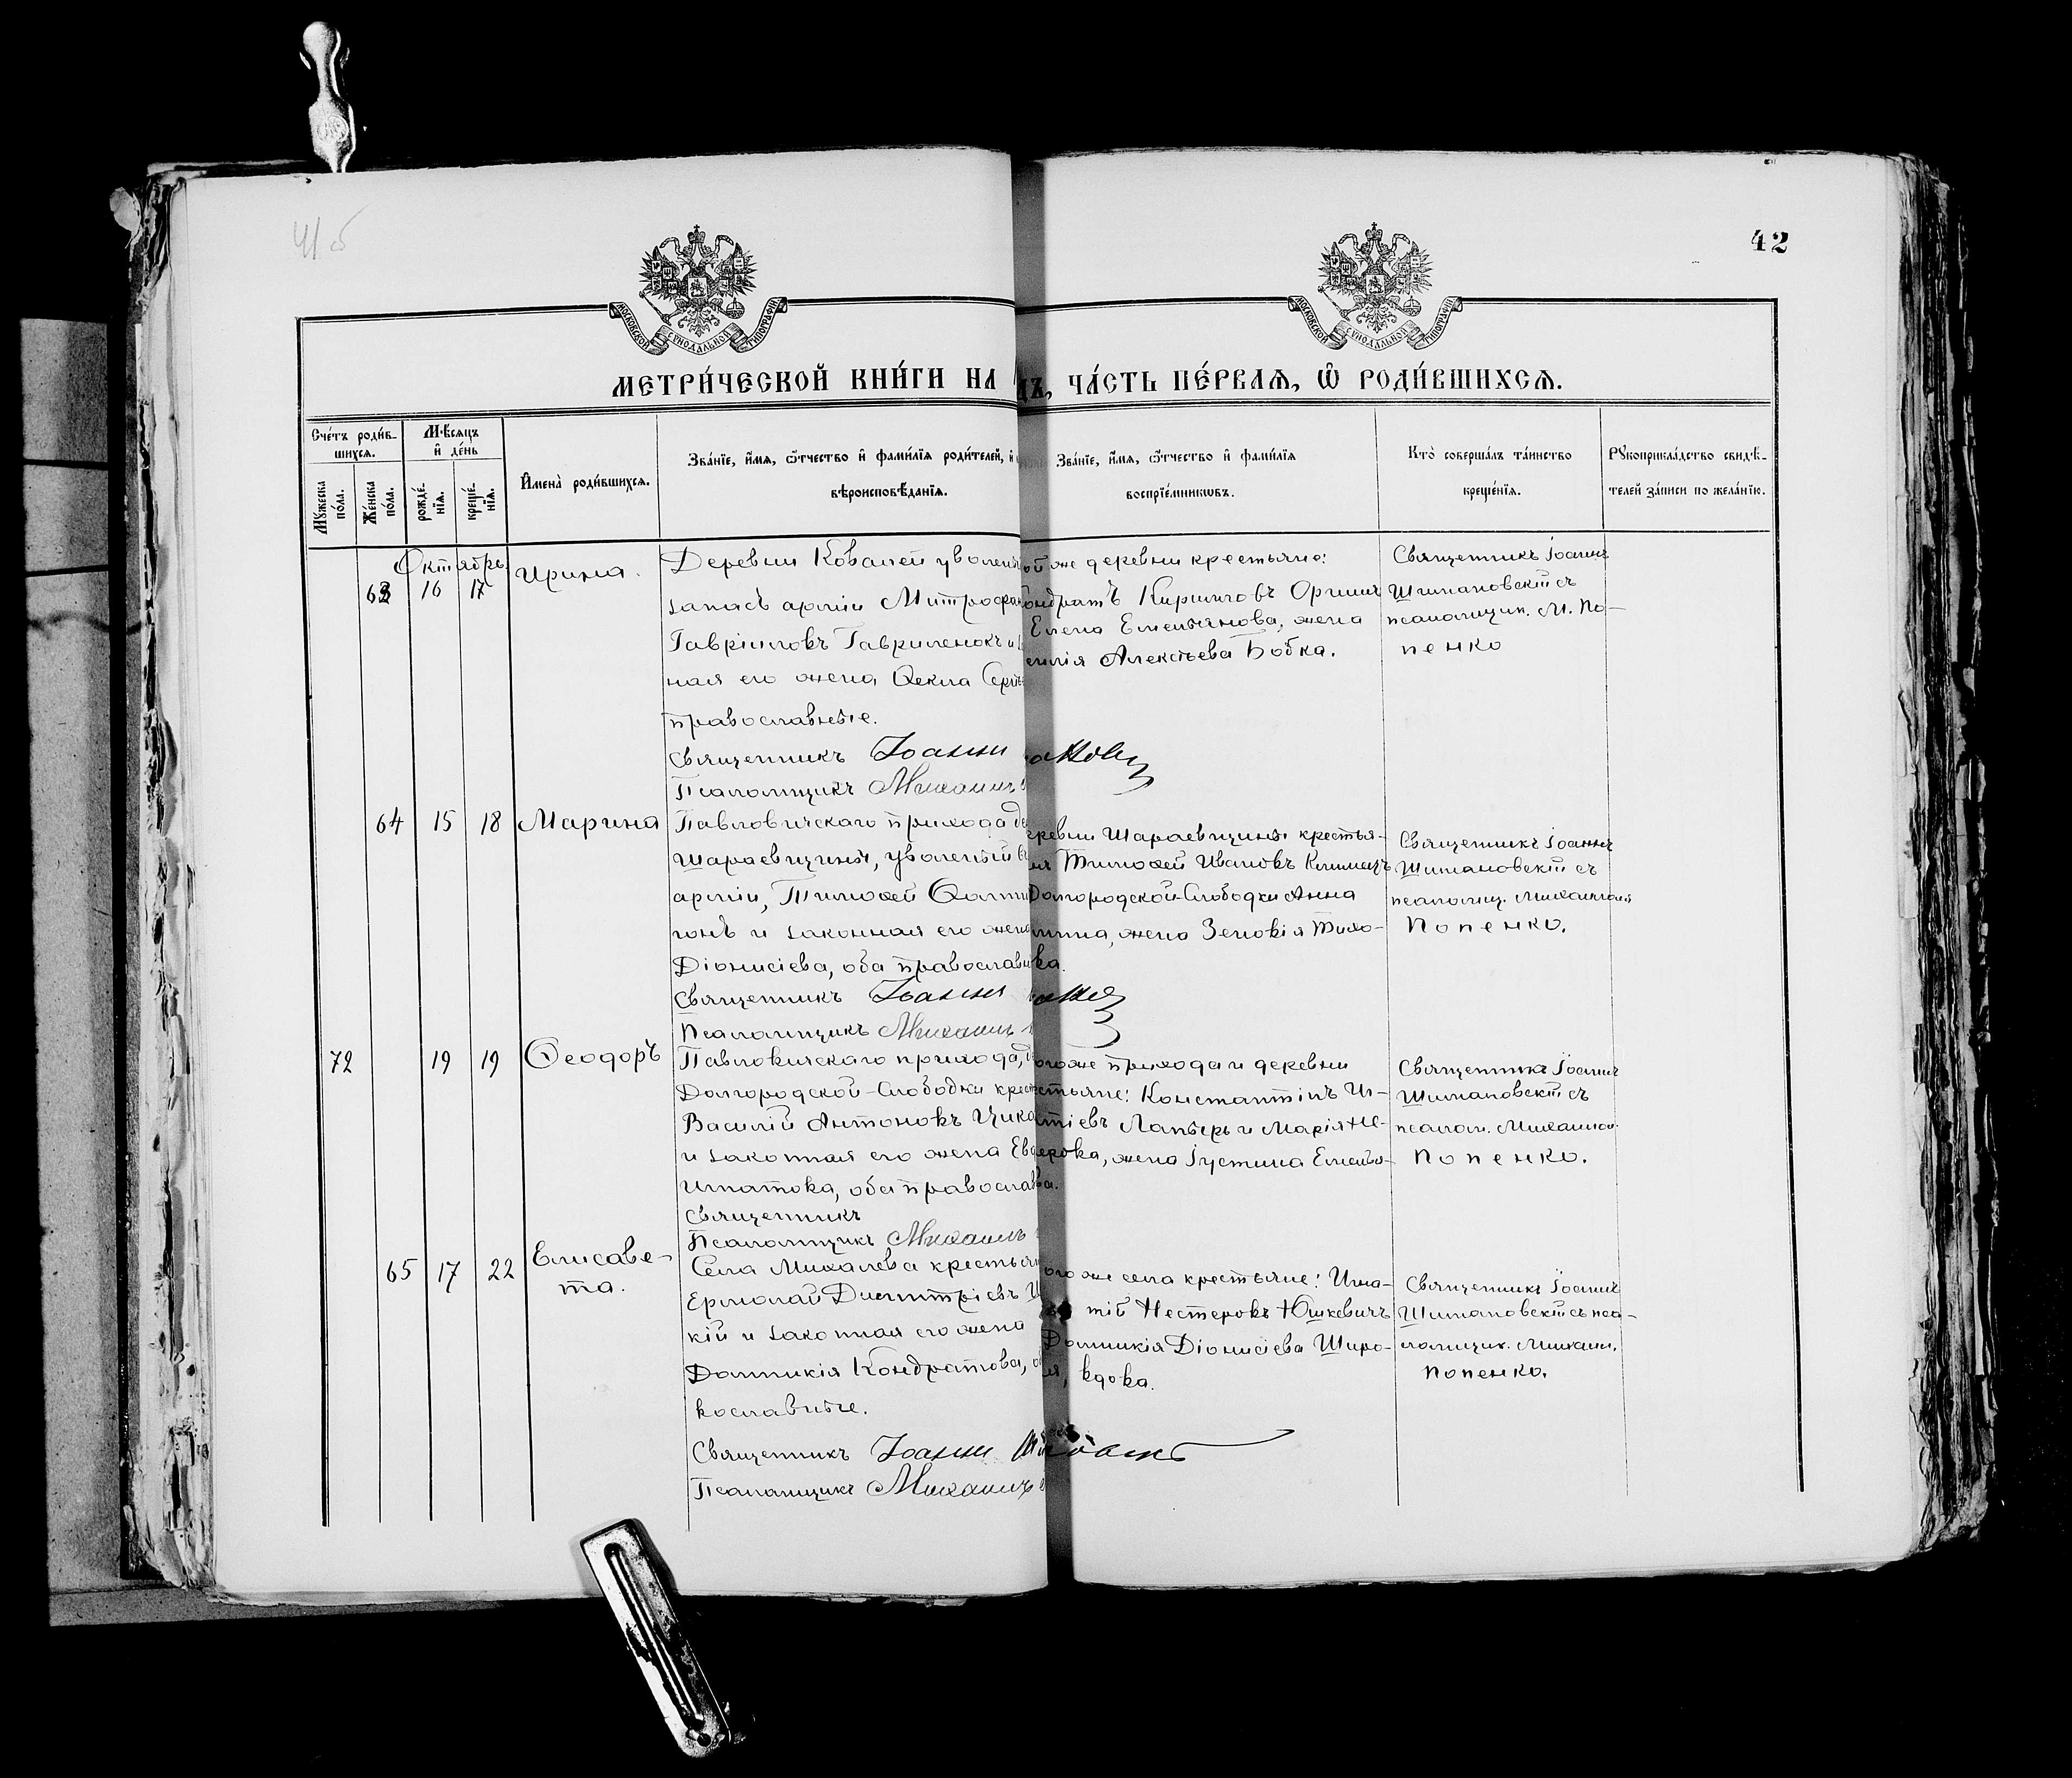 41 б
42
МОСКОВСКОЙ СѴНОДАЛЬНОЙ ТИПОГРАФІИ
МОСКОВСКОЙ СѴНОДАЛЬНОЙ ТИПОГРАФІИ
МЕТРИ́ЧЕСКОЙ КНИ́ГИ НА
ДЪ, ЧА́СТЬ ПЕ́РВАѦ, Ѽ РОДИ́ВШИХСѦ.
Сче́тъ роди́в-
шихсѧ.
Мѣ́сѧцъ
и҆ де́нь
Мꙋ́жеска по́ла.
Же́нска по́ла.
рожде́-
нїѧ.
креще́-
нїѧ.
И҆мена̀ роди́вшихсѧ.
Зва́нїе, и҆́мѧ, ѻ҆́тчество и҆ фами́лїѧ роди́телей, и҆
вѣроисповѣ́данїѧ.
Зва́нїе, и҆́мѧ, ѻ҆́тчество и҆ фами́лїѧ
воспрїе́мниковъ.
Кто̀ соверша́лъ та́инство
креще́нїѧ.
Рꙋкоприкла́дство свидѣ́-
телей за́писи по жела́нїю.
Октябрь
63 16 17 Ирина.
Деревни Ковалей уволен
запасъ арміи Митрофан
Гавріиловъ Гавриленокъ и
ная его жена Ѳекла Серг
православные.
Священникъ Іоаннъ
Псаломщикъ Михаилъ
ой же деревни крестьяне:
ондратъ
Елена Емельянова, жена
Алексѣева Бобка.
Священникъ Іоаннъ
Шимановскій съ
псаломщик. М. По-
пенко
64 15 18 Марина
Павловичскаго прихода де
Шараевщины, уволеный въ
арміи, Тимоѳей
и законная его жена
Діонисіева, оба православн
Священникъ Іоаннъ
Псаломщикъ Михаилъ
еревни Шараевщины крестья-
Тимоѳей Ивановъ
Долгородской-Слободки Анна
жена Зеновія Тимо-
ва.
Священникъ Іоаннъ
Шимановскій съ
псаломщ. Михаиломъ
Попенко.
72 19 19 Ѳеодоръ
Павловичскаго прихода, д
Долгородской-Слободки крес
Василій Антоновъ Цика
и законная его жена Ев
Игнатова, оба православ
Священникъ
Псаломщикъ Михаилъ
огоже прихода и деревни
стьяне: Константінъ Иг-
тіевъ Лапырь и Марія Не-
ерова, жена Іустина Емелья-
ва.
Священника Іоаннъ
Шимановскій съ
псалом. Михаилом
Попенко.
65 17 22 Елисаве-
та.
Села Михалева крестьян
Ермолай Димитріевъ
кій и законная его жена
Домникія Кондратова, о
вославные.
Священникъ Іоаннъ
Псаломщикъ Михаилъ
ого же села крестьяне: Игна-
тій Нестеровъ Юшкевичъ
Домникія Діонисіева Широ-
ая, вдова.
Священникъ Іоаннъ
Шимановскій съ пса-
ломщик. Михаил.
Попенко.